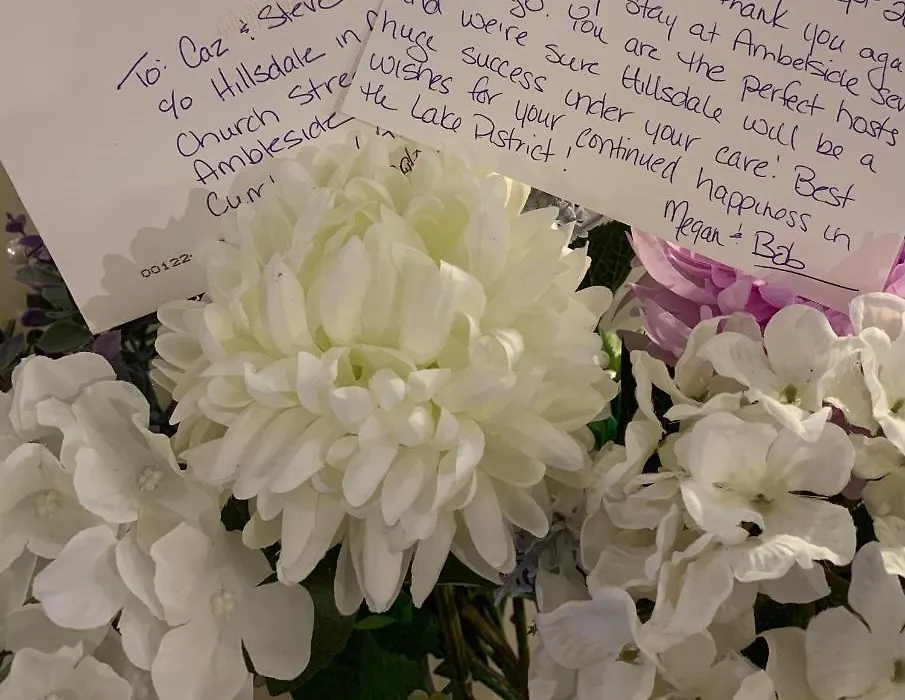 To: Caz & Steve
c/o Hillsdale in
Church Stre
Ambleside
Cum
00122
thank you aga
go. stay at Ambleside
and You are the perfect hosts
we're sure Hillsdale will be a
huge success under your care! Best
wishes for your continued happiness in
the Lake District!
Megan & Bob